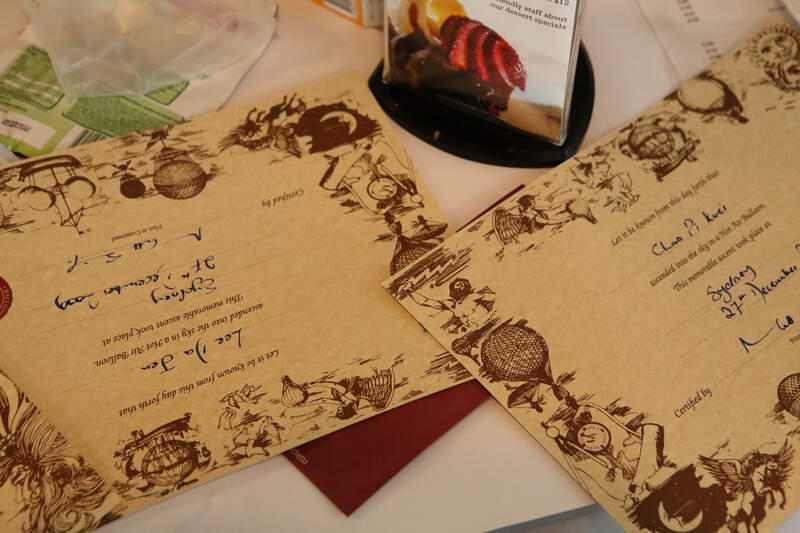 $12
friendly staff about
our dessert specials
Let it be known from this day forth that
Lee Ya Jen
ascended into the sky in a Hot Air Balloon.
This memorable ascent took place at
Sydney
27th December 2009
Pilot in Command
Certified by
Let it be known from this day forth that
Chao Pi Kuei
ascended into the sky in a Hot Air Balloon.
This memorable ascent took place at
Sydney
27th December
Certified by